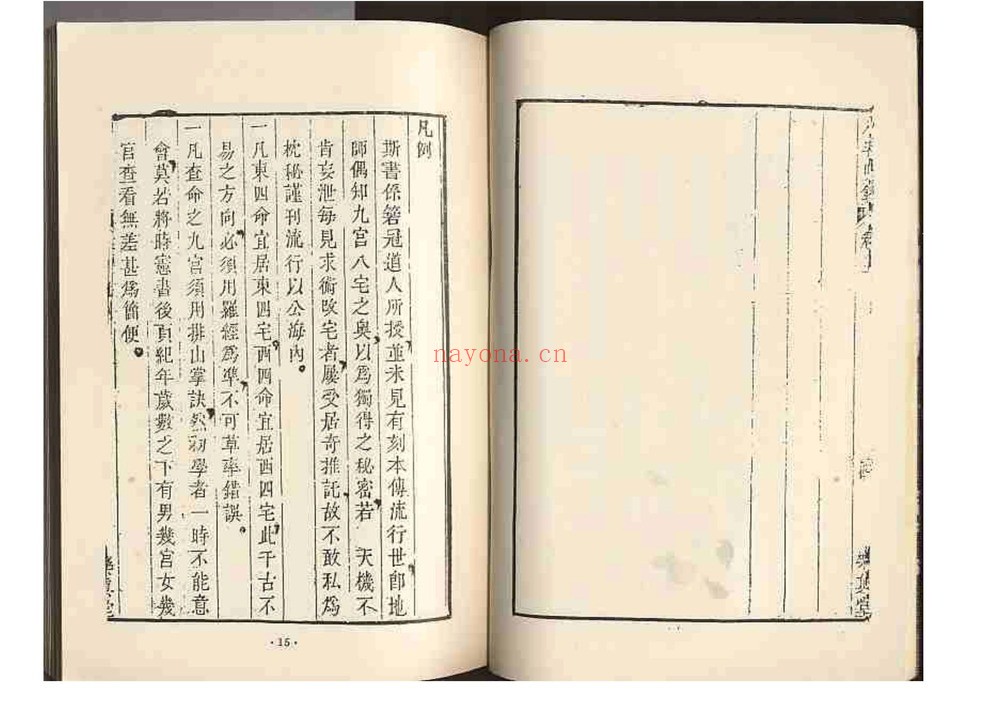 凡例
斯書係箬冠道人所授並未見有刻本傳流行世卽地
師偶知九宮八宅之奥以爲獨得之秘密若 天機不
肯妄泄每見求術改宅者屢受居奇推託故不敢私爲
枕秘謹刊流行以公海內。
一凡東四命宜居東四宅西四命宜居西四宅此千古不
易之方向必須用羅經爲準不可草率錯誤。
一凡查命之九宮須用排山掌訣然初學者一時不能意
會莫若將時憲書後頁紀年歲數之下有男幾宮女幾
宮查看無差甚爲簡便。
·15·
nayona.cn